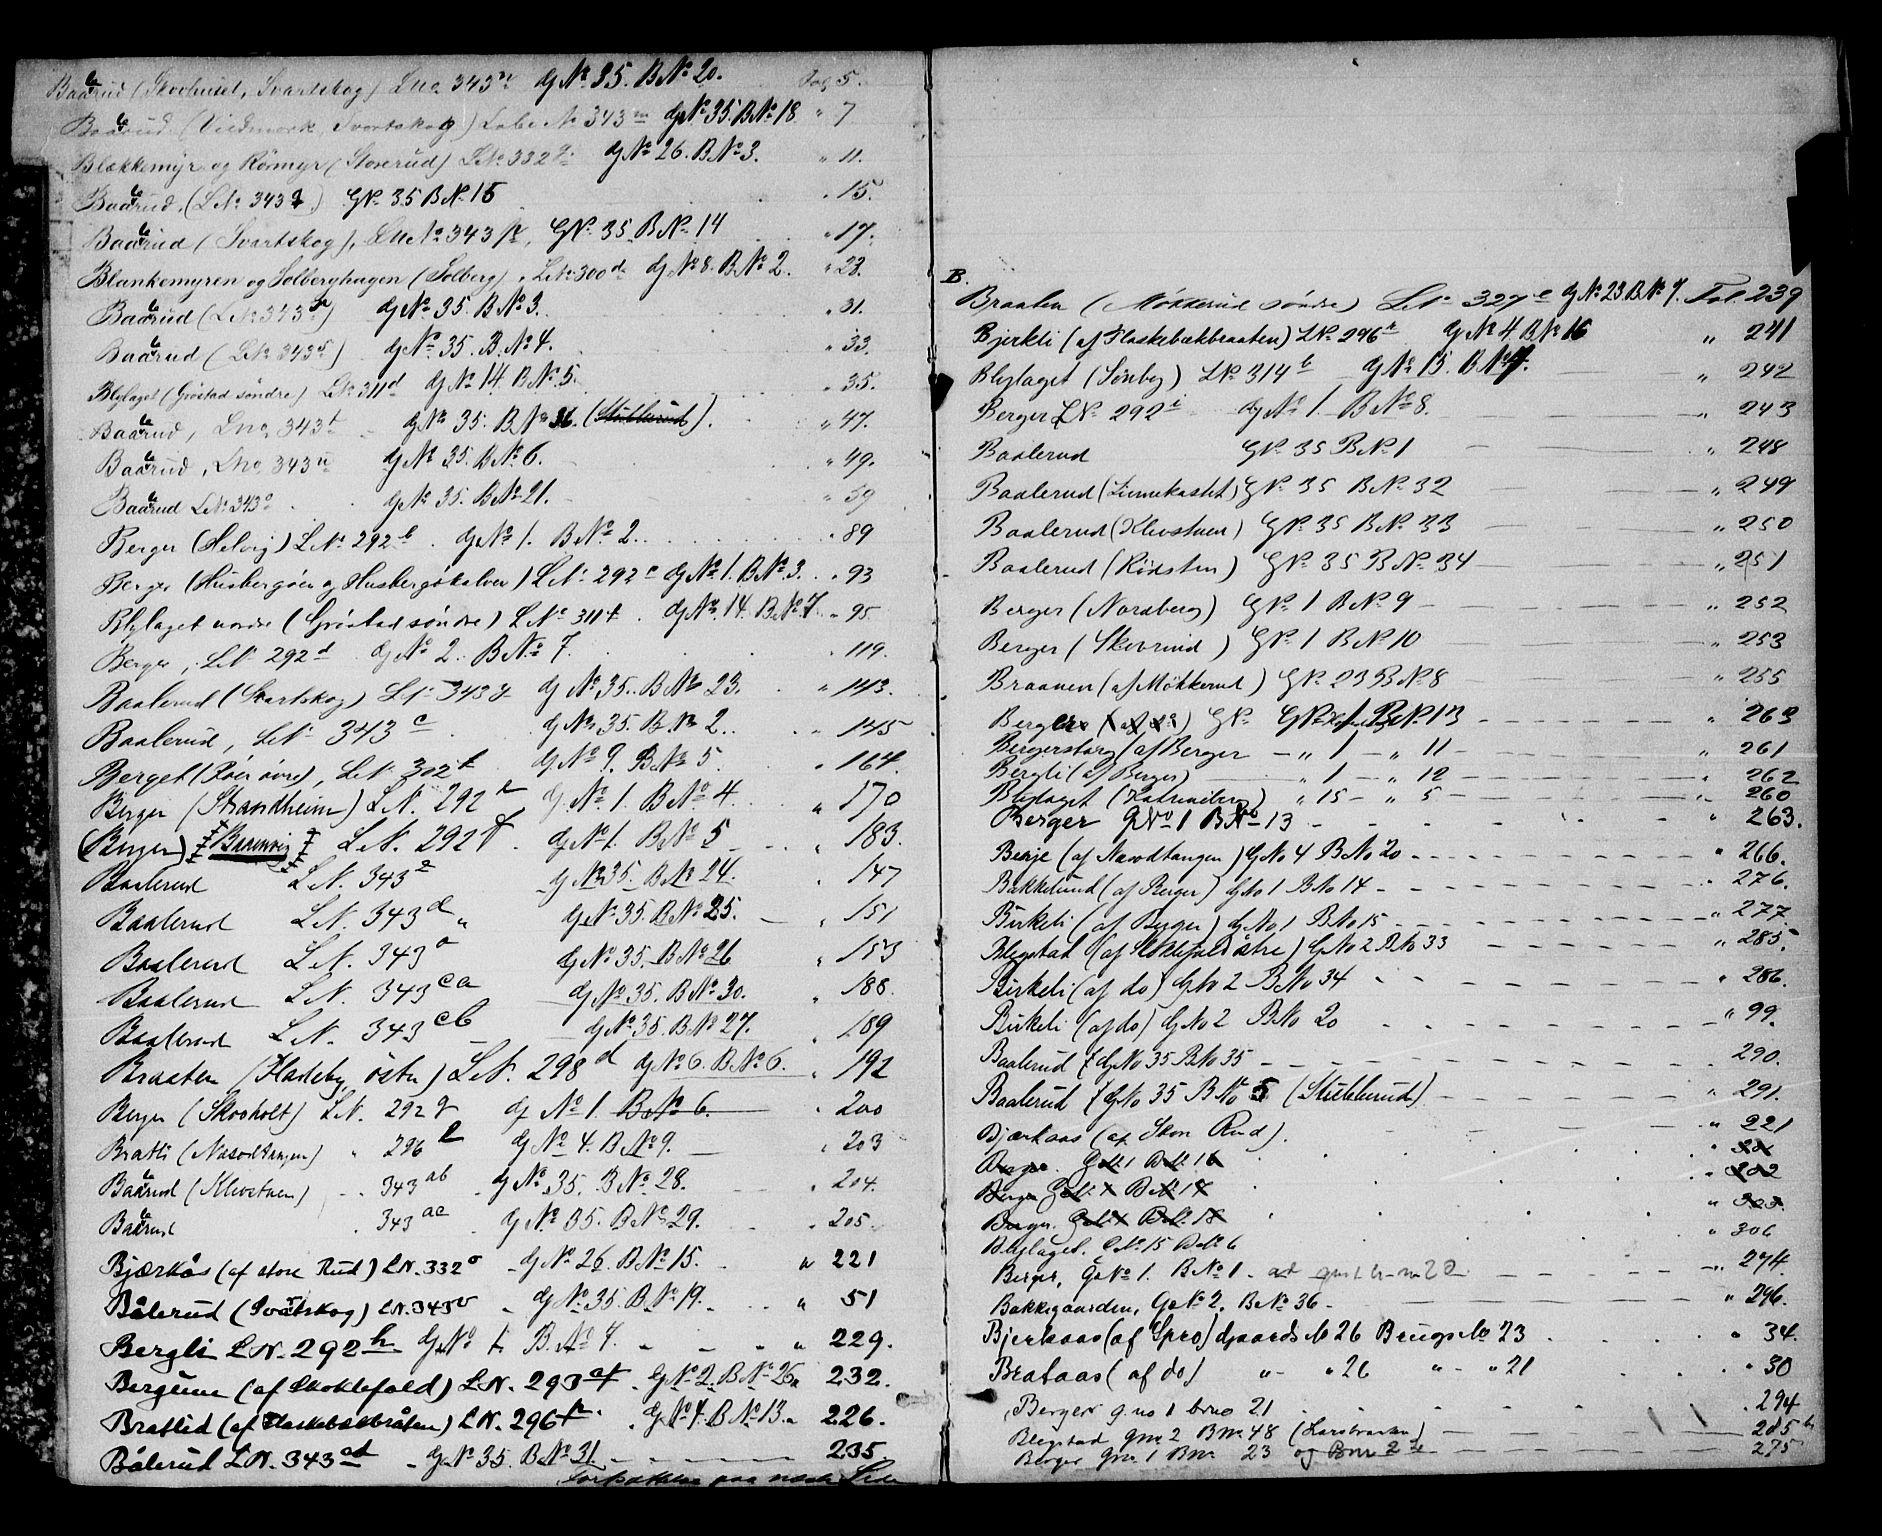 Baarud (Skovhuset, Svartskog) Lno 343 n GNo 35. BNo 20. Fol. 5.
Baarud (Viedmork, Svartskog) Løbe No 343 m GNo 35. BNo 18 " 7
Blækkemyr og Rörmyr (Storerud) LNo 332 GNo 26. BNo 3. " 11.
Baarud, (LNo 343 q) GNo 35 BNo 15 " 15.
Baarud (Svartskog), LNo 343 p, GNo 35 BNo 14 " 17.
Blankemyren og Solberghagen (Solberg), LNo 300 d GNo 8. BNo 2. " 23.
Baarud (LNo 343 r) GNo 35 BNo 3. " 31.
Baarud (LNo 343 s) GNo 35. BNo 4. " 33.
Blylaget (Grøstad søndre) LNo 311 d GNo 14. BNo 5. " 35.
Baarud, Lno 343 t GNo 35. BNo 36. (Stubberud). " 47.
Baarud, Lno 343 u GNo 35. BNo 6. " 49.
Baarud LNo 343 o GNo 35. BNo 21. " 59
Berger (Helvig) LNo 292 b GNo 1. BNo 2. " 89
Berger (Husbergøen og Husbergøkalven) LNo 292 c GNo 1. BNo 3. " 93
Blylaget nordre (Grøstad søndre) LNo 311 f GNo 14. BNo 7. " 95.
Berger, LNo 292 d GNo 2. BNo 7. " 119.
Baalerud (Svartskog) LNo 343 y GNo 35. BNo 23. " 143.
Baalerud, LNo 343 c GNo 35. BNo 2. " 145
Berget (Røer øvre), LNo 302 t GNo 9. BNo 5 " 164.
Berger (Strandheim) LN. 292 e GNo 1. BNo 4. " 170
(Berger) Bramvig LN. 292 f GNo 1. BNo 5 " 183.
Baalerud LN. 343 z GNo 35. BNo 24. " 147
Baalerud LN. 343 d GNo 35. BNo 25. " 151
Baalerud LN. 343 o GNo 35. BNo 26 " 153
Baalerud LN. 343 ca GNo 35. BNo 30. " 188.
Baalerud LN. 343 cb GNo 35. BNo 27. " 189
Braaten (Fladeby østre) LN. 298 d GNo 6. BNo 6. " 192
Berger (Skovholt) LN. 292 g GNo 1. BNo 6. " 200
Bratli (Næsodtangen) " 296 l GNo 4. BNo 9. " 203
Baarud (Klevstuen) " 343 ab GNo 35. BNo 28. " 204.
Baarud 343 ac GNo 35. BNo 29. " 205.
Bjærkås (af store Rud) LN. 332 o GNo 26. BNo 15. " 221
Bålerud (Svartskog) LN. 343 v GNo 35. BNo 19. " 51
Bergli LN. 292 h GNo 1. BNo 7. " 229.
Bergum (af Skoklefald) LN. 293 af GNo 2. BNo 26 " 232.
Bratlid (af Flaskebækbråten) LN. 296 p. GNo 4. BNo 13. " 226.
Bålerud LN. 343 ad GNo 35. BNo 31. 235
Fortsættes paa næste Side
B.
Braaten (Møkkerud søndre) LNo 327 e GNo 23 BNo 7. Fol. 239
Bjerkli (af Flaskebækbraaten) LNo 296 r GNo 4 BNo 16 " 241
Blylaget (Sønby) LNo 314 b GNo 15. BNo 4. " 242
Berger LNo 292 i GNo 1. BNo 8. " 243
Baalerud GNo 35 BNo 1 " 248
Baalerud (Linnekastet) GNo 35 BNo 32 " 249
Baalerud (Klevstuen) GNo 35 BNo 33 " 250
Baalerud (Rødsten) GNo 35 BNo 34 " 251
Berger (Nordberg) GNo 1 BNo 9 " 252
Berger (Skovrud) GNo 1 BNo 10 " 253
Braanen (af Møkkerud) GNo 23 BNo 8 " 255
Berger GNo 1 BNo 13 " 263
Bergersborg (af Berger — " 1 — " 11 " 261
Bergli (af Berger) " 1 — " 12 " 262
Blylaget (Katrineberg) " 15 — " 5 " 260
Berger GNo 1 BNo 13 " 263.
Berje (af Næsodtangen) GNo 4 BNo 20 " 266.
Bakkelund (af Berger) GNo 1 BNo 14 " 276.
Birkeli (af Berger) GNo 1 BNo 15 " 277
Blegstad (af Skoklefald østre) GNo 2 BNo 33 " 285.
Birkeli (af do) GNo 2 BNo 34 " 286.
Birkeli (af do) GNo 2 BNo 20 " 99.
Baalerud GNo 35 BNo 35 290.
Baalerud GNo 35 BNo 5 (Stubberud) " 291.
Bjærkaas (af Store Rud). " 221
Berger. GNo 1 BNo 16
Berger GNo 1 BNo 17 " 302
Berger. GNo 1 BNo 18 " 303.
Blylaget. GNo 15 BNo 6 " 306
Berger, GNo 1. BNo 1. 274.
Bakkegaarden, GNo 2. BNo 36 " 296.
Bjerkaas (af Spro) Gaards No 26 Brugs No 23 " 34.
Brataas (af do) " - " 26 " - " 21 " 30
Berger gno 1 bno 21 . 294
Blegstad gno 2 Bno 48 285 b
Berger gno 1 Bno 23 og Bno 22 275